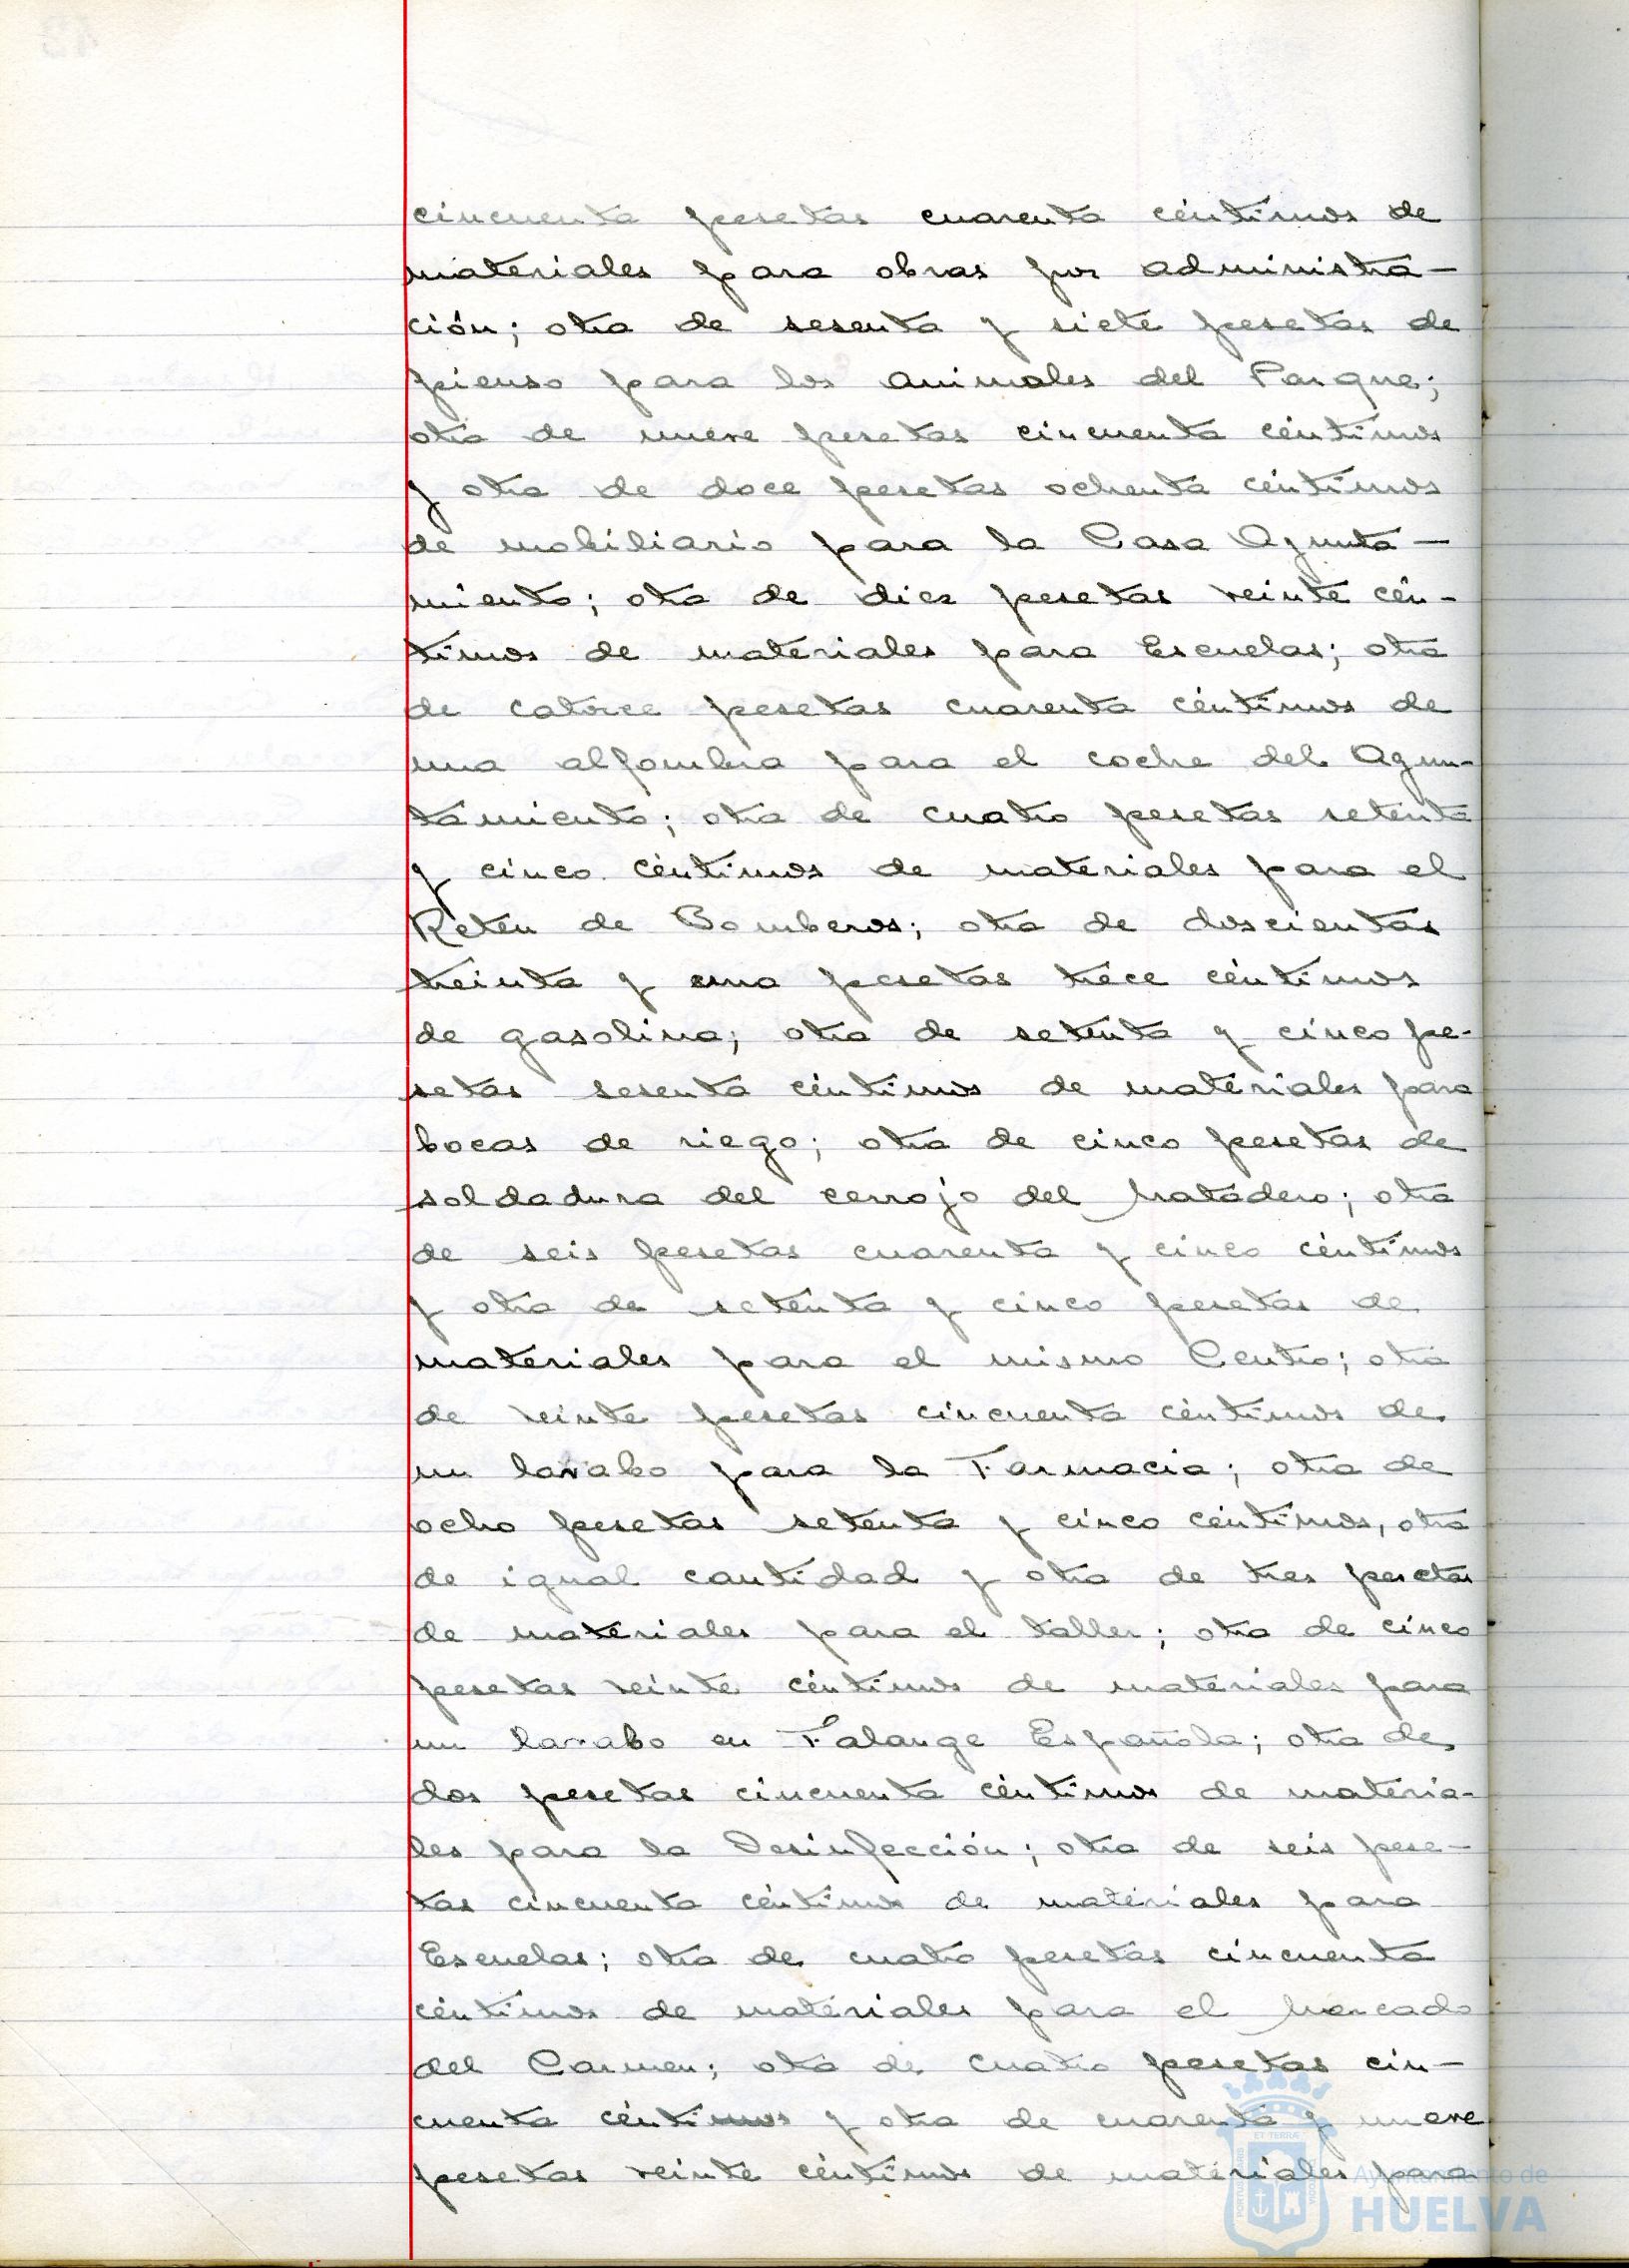 cincuenta pesetas cuarenta céntimos de
materiales para obras por administra-
ción; otra de sesenta y siete pesetas de
pienso para los animales del Parque;
otra de nueve pesetas cincuenta céntimos
y otra de doce pesetas ochenta céntimos
de mobiliario para la Casa Ayunta-
miento; otra de diez pesetas veinte cén-
timos de materiales para Escuelas; otra
de catorce pesetas cuarenta céntimos de
una alfombra para el coche del Ayun-
tamiento; otra de cuatro pesetas setenta
y cinco céntimos de materiales para el
Reten de Bomberos; otra de doscientas
treinta y una pesetas trece céntimos
de gasolina; otra de setenta y cinco pe-
setas sesenta céntimos de materiales para
bocas de riego; otra de cinco pesetas de
soldadura del cerrojo del Matadero; otra
de seis pesetas cuarenta y cinco céntimos
y otra de setenta y cinco pesetas de
materiales para el mismo Centro; otra
de veinte pesetas cincuenta céntimos de
un lavabo para la Farmacia; otra de
ocho pesetas setenta y cinco céntimos, otra
de igual cantidad y otra de tres pesetas
de materiales para el taller; otra de cinco
pesetas veinte céntimos de materiales para
un lavabo en Falange Española; otra de
dos pesetas cincuenta céntimos de materia-
les para la Desinfección; otra de seis pese-
tas cincuenta céntimos de materiales para
Escuelas; otra de cuatro pesetas cincuenta
céntimos de materiales para el Mercado
del Carmen; otra de cuatro pesetas cin-
cuenta céntimos y otra de cuarenta y nueve
pesetas veinte céntimos de materiales para
Ayuntamiento de
HUELVA